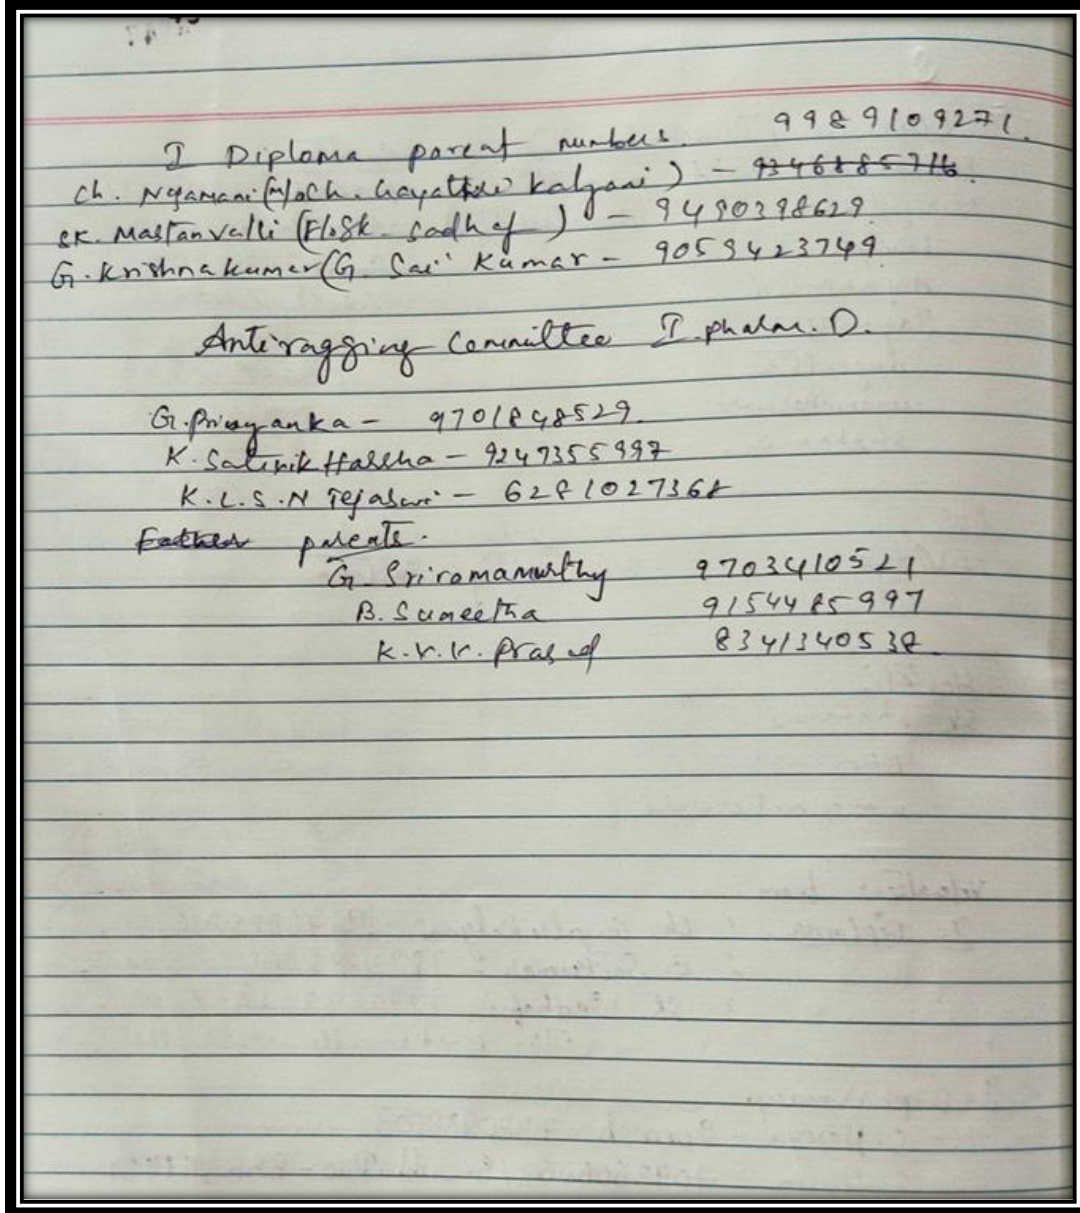 I Diploma parent numbers. 9989109271.
Ch. Ngamani (M/o Ch. Gayathri Kalyani) - 9346885716
SK. Mastanvalli (F/o Sk. Sadhef) - 9490398629
G. Krishna kumar (G. Sai Kumar - 9059423749
Antiragging Committee I. pharm. D.
G. Priayanka - 9701848529
K. Satirik Harsha - 9247355997
K.L.S.N Tejaswi - 6281027368
Father parents.
G. Sriramamurthy 9703410521
B. Suneetha 9154485997
K.V.V. Prasad 8341340538